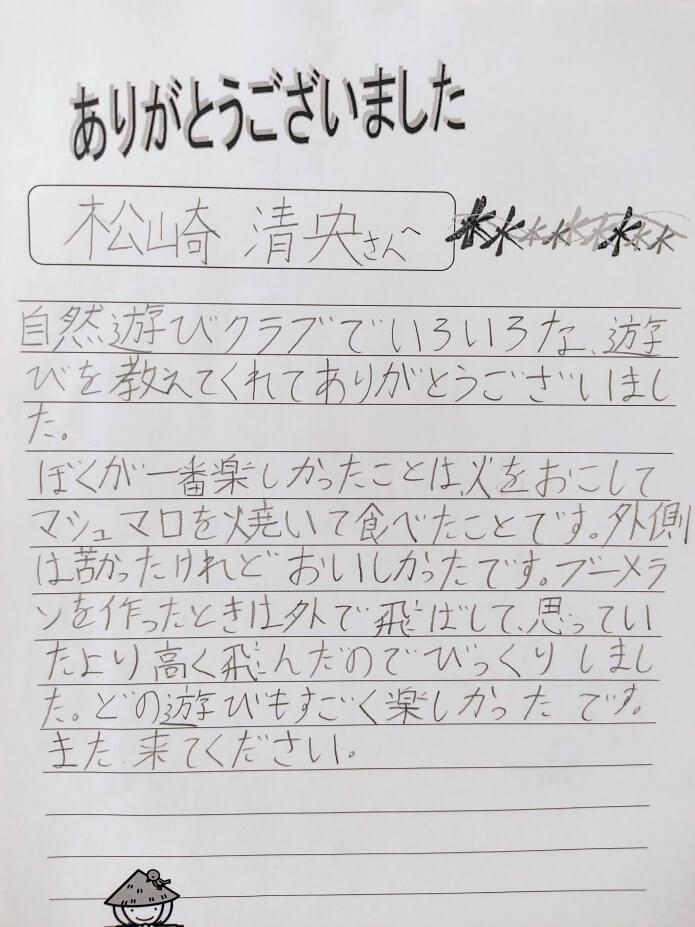 ありがとうございました
松山崎 清央さんへ
自然遊びクラブでいろいろな、遊
びを教えてくれてありがとうございまし
た。
ぼくが一番楽しかったことは、火をおこして
マシュマロを焼いて食べたことです。外側
は苦かったけれどおいしかったです。ブーメラ
ンを作ったときは外で飛ばして、思ってい
たより高く飛んだのでびっくりしまし
た。どの遊びもすごく楽しかったです。
また、来てください。